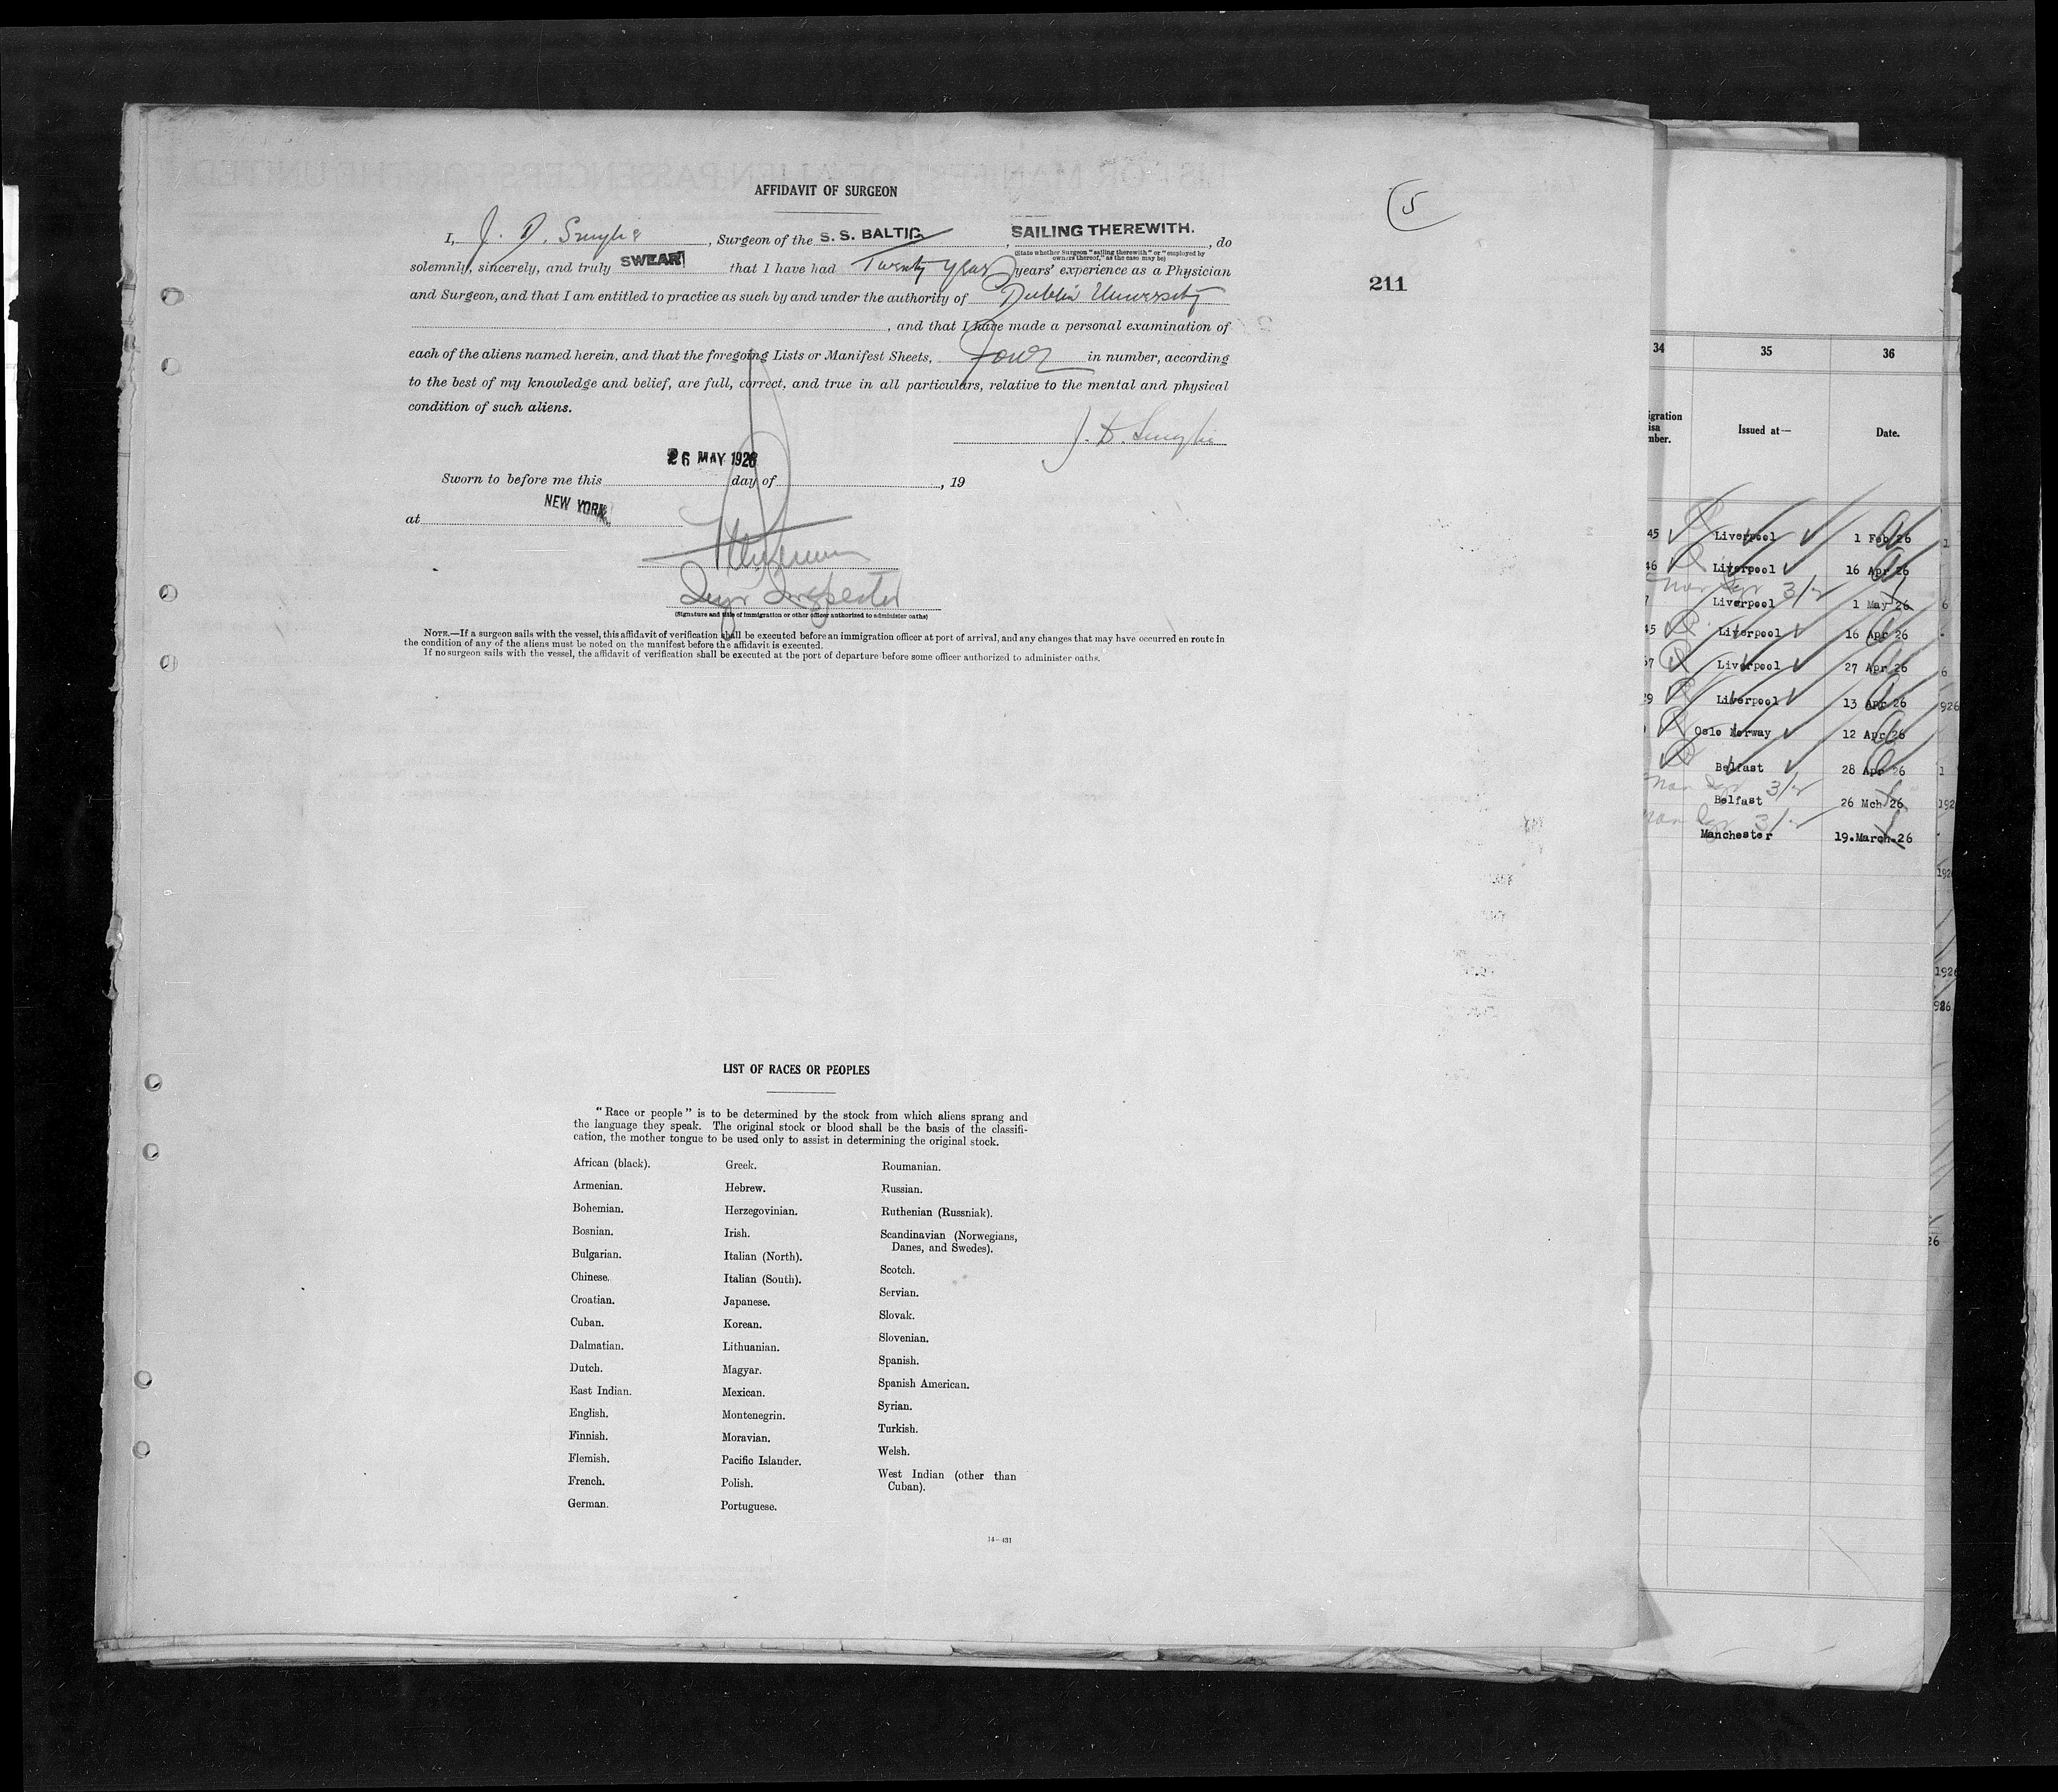 AFFIDAVIT OF SURGEON
5
I, J. D. Smylie, Surgeon of the S. S. BALTIC, SAILING THEREWITH., do
(State whether Surgeon "sailing therewith" or "employed by
owners thereof," as the case may be)
solemnly, sincerely, and truly SWEAR that I have had Twenty years years' experience as a Physician
211
and Surgeon, and that I am entitled to practice as such by and under the authority of Dublin University
, and that I have made a personal examination of
each of the aliens named herein, and that the foregoing Lists or Manifest Sheets, Four in number, according
to the best of my knowledge and belief, are full, correct, and true in all particulars, relative to the mental and physical
condition of such aliens.
J. D. Smylie
26 MAY 1926
Sworn to before me this day of , 19
at NEW YORK
Inspector
(Signature and title of immigration or other officer authorized to administer oaths)
NOTE.—If a surgeon sails with the vessel, this affidavit of verification shall be executed before an immigration officer at port of arrival, and any changes that may have occurred en route in
the condition of any of the aliens must be noted on the manifest before the affidavit is executed.
If no surgeon sails with the vessel, the affidavit of verification shall be executed at the port of departure before some officer authorized to administer oaths.
LIST OF RACES OR PEOPLES
"Race or people" is to be determined by the stock from which aliens sprang and
the language they speak. The original stock or blood shall be the basis of the classifi-
cation, the mother tongue to be used only to assist in determining the original stock.
African (black).
Armenian.
Bohemian.
Bosnian.
Bulgarian.
Chinese.
Croatian.
Cuban.
Dalmatian.
Dutch.
East Indian.
English.
Finnish.
Flemish.
French.
German.
Greek.
Hebrew.
Herzegovinian.
Irish.
Italian (North).
Italian (South).
Japanese.
Korean.
Lithuanian.
Magyar.
Mexican.
Montenegrin.
Moravian.
Pacific Islander.
Polish.
Portuguese.
Roumanian.
Russian.
Ruthenian (Russniak).
Scandinavian (Norwegians,
Danes, and Swedes).
Scotch.
Servian.
Slovak.
Slovenian.
Spanish.
Spanish American.
Syrian.
Turkish.
Welsh.
West Indian (other than
Cuban).
14—431
34 35 36
igration
isa
mber.
Issued at—
Date.
45 Liverpool 1 Feb 26
46 Liverpool 16 Apr 26
3/
7 Liverpool 1 May 26
45 Liverpool 16 Apr 26
57 Liverpool 27 Apr 26
29 Liverpool 13 Apr 26
Oslo Norway 12 Apr 26
Belfast 28 Apr 26
3/
Belfast 26 Mch 26
3/
Manchester 19.March.26
1
6
6
926
1
192
192
1926
926
26